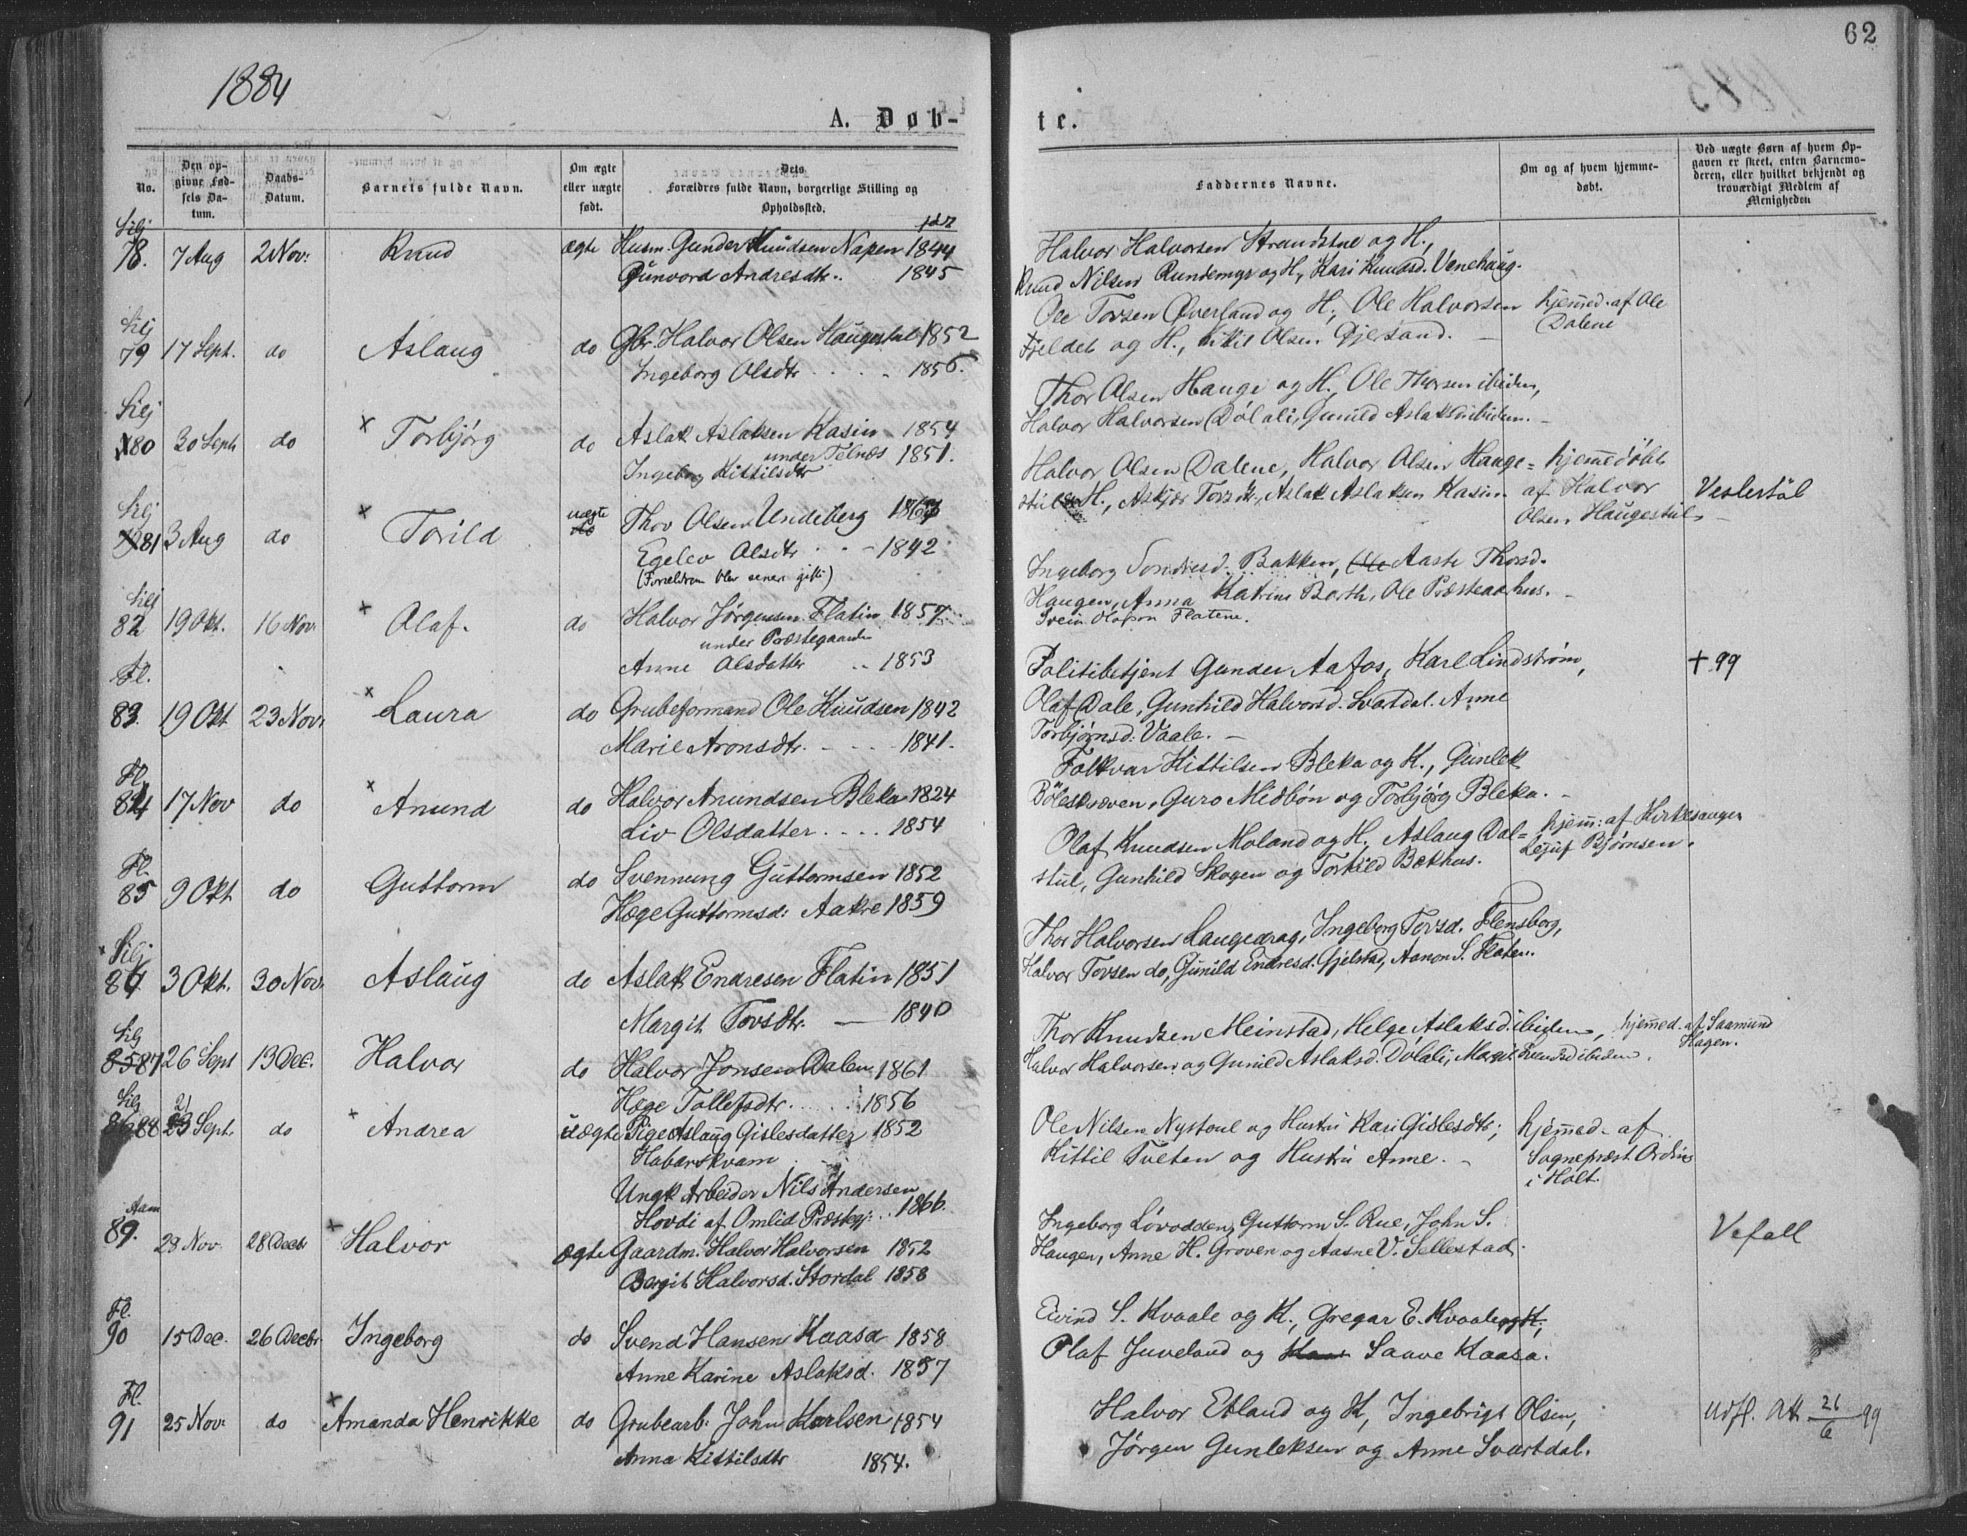 62
1884
A. Døb-
te.
No.
Den op-
givne Fød-
sels Da-
tum.
Daabs-
Datum.
Barnets fulde Navn.
Om ægte
eller uægte
født.
Dets
Forældres fulde Navn, borgerlige Stilling og
Opholdssted.
Faddernes Navne.
Om og af hvem hjemme-
døbt.
Ved uægte Børn af hvem Op-
gaven er skeet, enten Barnemo-
deren, eller hvilket bekjendt og
troværdigt Medlem af
Menigheden
Silj
78. 7 Aug 2 Nov: Knud ægte Husm. Gunder Knudsen Napen 1844
Gunvord Andresdtr. 1845
Halvor Halvorsen Strandstue og H.,
Knud Nilsen Rundemyr og H., Kari Knudsd. Venehaug.
Silj
79 17 Sept. do Aslaug do Gbr. Halvor Olsen Haugestul 1852
Ingeborg Olsdtr 1856.
Ole Torsen Øverland og H., Ole Halvorsen
Fjeldet og H., Kittil Olsen Djersand.
hjemmed. af Ole
Dalene
Silj
80 30 Sept. do × Torbjørg do Aslak Aslaksen Kasin 1854
under Telnæs
Ingeborg Kittilsdtr 1851.
Thor Olsen Hauge og H., Ole Thorsen ibiden,
Halvor Halvorsen Dølali, Gunild Aslaksd ibidem.
Silj
81 3 Aug do × Torild uægte Thov Olsen Undeberg 1863
Egelev Olsdtr 1842
(Forældrene blev senere gift)
Halvor Olsen Dalene, Halvor Olsen Hauge=
stul og H., Askjær Torsdtr, Aslak Aslaksen Kasin.
hjemmedøbt
af Halvor
Olsen Haugestul
Veslestöl
Silj
82 19 Okt. 16 Nov: × Olaf. do Halvor Jørgensen Flatin 1857
under Præstegaarden
Anne Olsdatter 1853
Ingeborg Sondresd. Bakken, Aaste Thorsd.
Haugen, Anna Katrine Barth, Ole Præsteaahus.
Svein Olafson Flatene.
Fl.
83. 19 Okt 23 Nov: × Laura do Grubeformand Ole Knudsen 1842
Marie Aronsdtr. 1841.
Politibetjent Gunder Aafos, Karl Lindstrøm,
Olaf Dale, Gunhild Halvorsd. Svartdal. Anne
Torbjørnsd: Vaale.
+ 99
Fl.
84 17 Nov do × Anund do Halvor Anundsen Bleka 1824
Liv Olsdatter 1854
Folkvar Kittilsen Bleka og K., Gunlek
Bøleskreven, Guro Midbøn og Torbjørg Bleka.
Fl.
85 9 Okt. do Guttorm do Svennung Guttormsen 1852
Hæge Guttormsd: Aakre 1859
Olaf Knudsen Moland og H. Aslaug Dal=
stul, Gunhild Skogen og Torkild Bekhus.
hjem: af Kirkesanger
Bjørnsen.
× Silj
86 3 Okt. 30 Nov. Aslaug do Aslak Endresen Flatin 1851
Margit Torsdtr. 1840
Thor Halvorsen Langedrag, Ingeborg Torsd. Flensborg,
Halvor Torsen do, Gunild Endresd. Gjelstad, Aanon S. Flaten.
Silj
87 26 Sept 13 Dec. Halvor do Halvor Jonsen Dalen 1861
Hæge Tollefsdtr. 1856
Thor Knudsen Meinstad, Helge Aslaksd ibiden,
Halvor Halvorsen og Gunild Aslaksd. Dølali, Margit Knudsd ibidem.
hjemmed. af Saamund
Hagen.
Silj
88 23 Sept. do × Andrea uægte Pige Aslaug Gislesdatter 1852
Haberskvam
Ungk Arbeider Nils Andersen
Hovdi af Omlid Præstegj. 1866.
Ole Nilsen Nystoul og Hustru Kari Gislesdtr;
Kittil Tveten og Hustru Anne.
hjemmed. af
Sognepræst Ording
i Holt.
Aam
89. 28 Nov. 28 Decbr × Halvor ægte Gaardm. Halvor Halvorsen 1852
Bergit Halvorsd. Stordal 1858
Ingeborg Løvodden, Guttorm S. Rue, John S.
Haugen, Anne H. Groven og Aasne V. Sellestad.
Vefall
Fl.
90 15 Dec. 26 Decbr. Ingeborg do Svend Hansen Kaasa 1858
Anne Karine Aslaksd. 1857
Eivind S. Kvaale og K., Gregar E. Kvaale og K.,
Olaf Juveland og Saave Kaasa.
Fl.
91 25 Nov: do × Amanda Henrikke do Grubearb. John Karlsen 1854
Anna Kittilsdtr 1854.
Halvor Etland og K, Ingebrigt Olsen,
Jørgen Gunleksen og Anne Svartdal.
Udfl. Att. 26/6 99